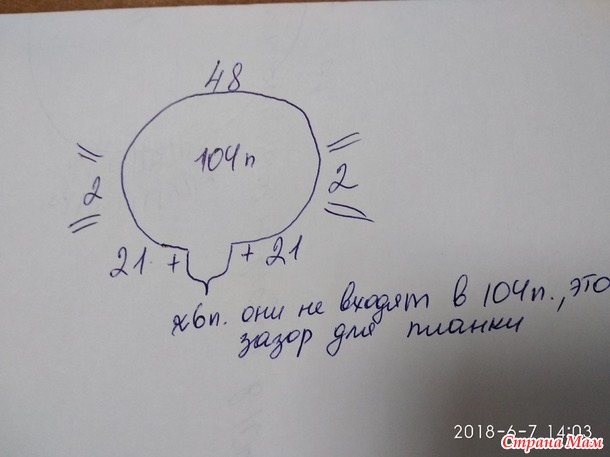 48
104п
2
2
21 +
+ 21
26п. они не входят в 104п., это
зазор для планки
2018-6-7 14:03
Страна Мам